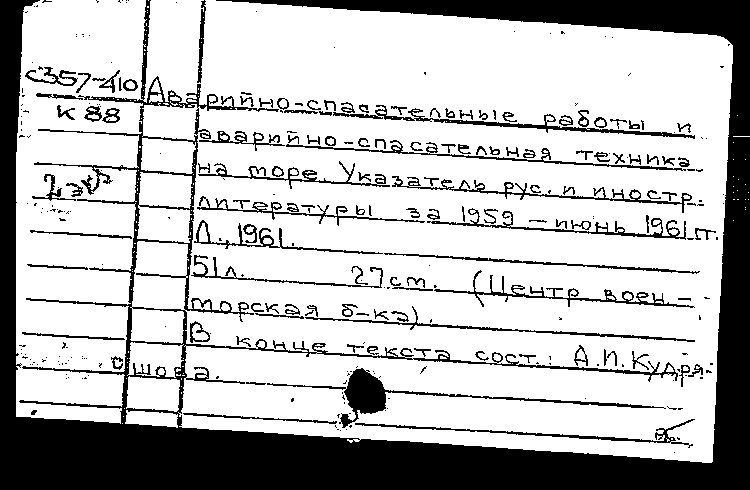 с357-410
К 88
2 экз
Аварийно-спасательные работы и
аварийно-спасательная техника
на море. Указатель рус. и иностр.
литературы за 1959 – июнь 1961 гг.
Л., 1961.
51л. 27см. (Центр воен-
морская б-ка).
В конце текста сост.: А.П. Кудря-
шова.